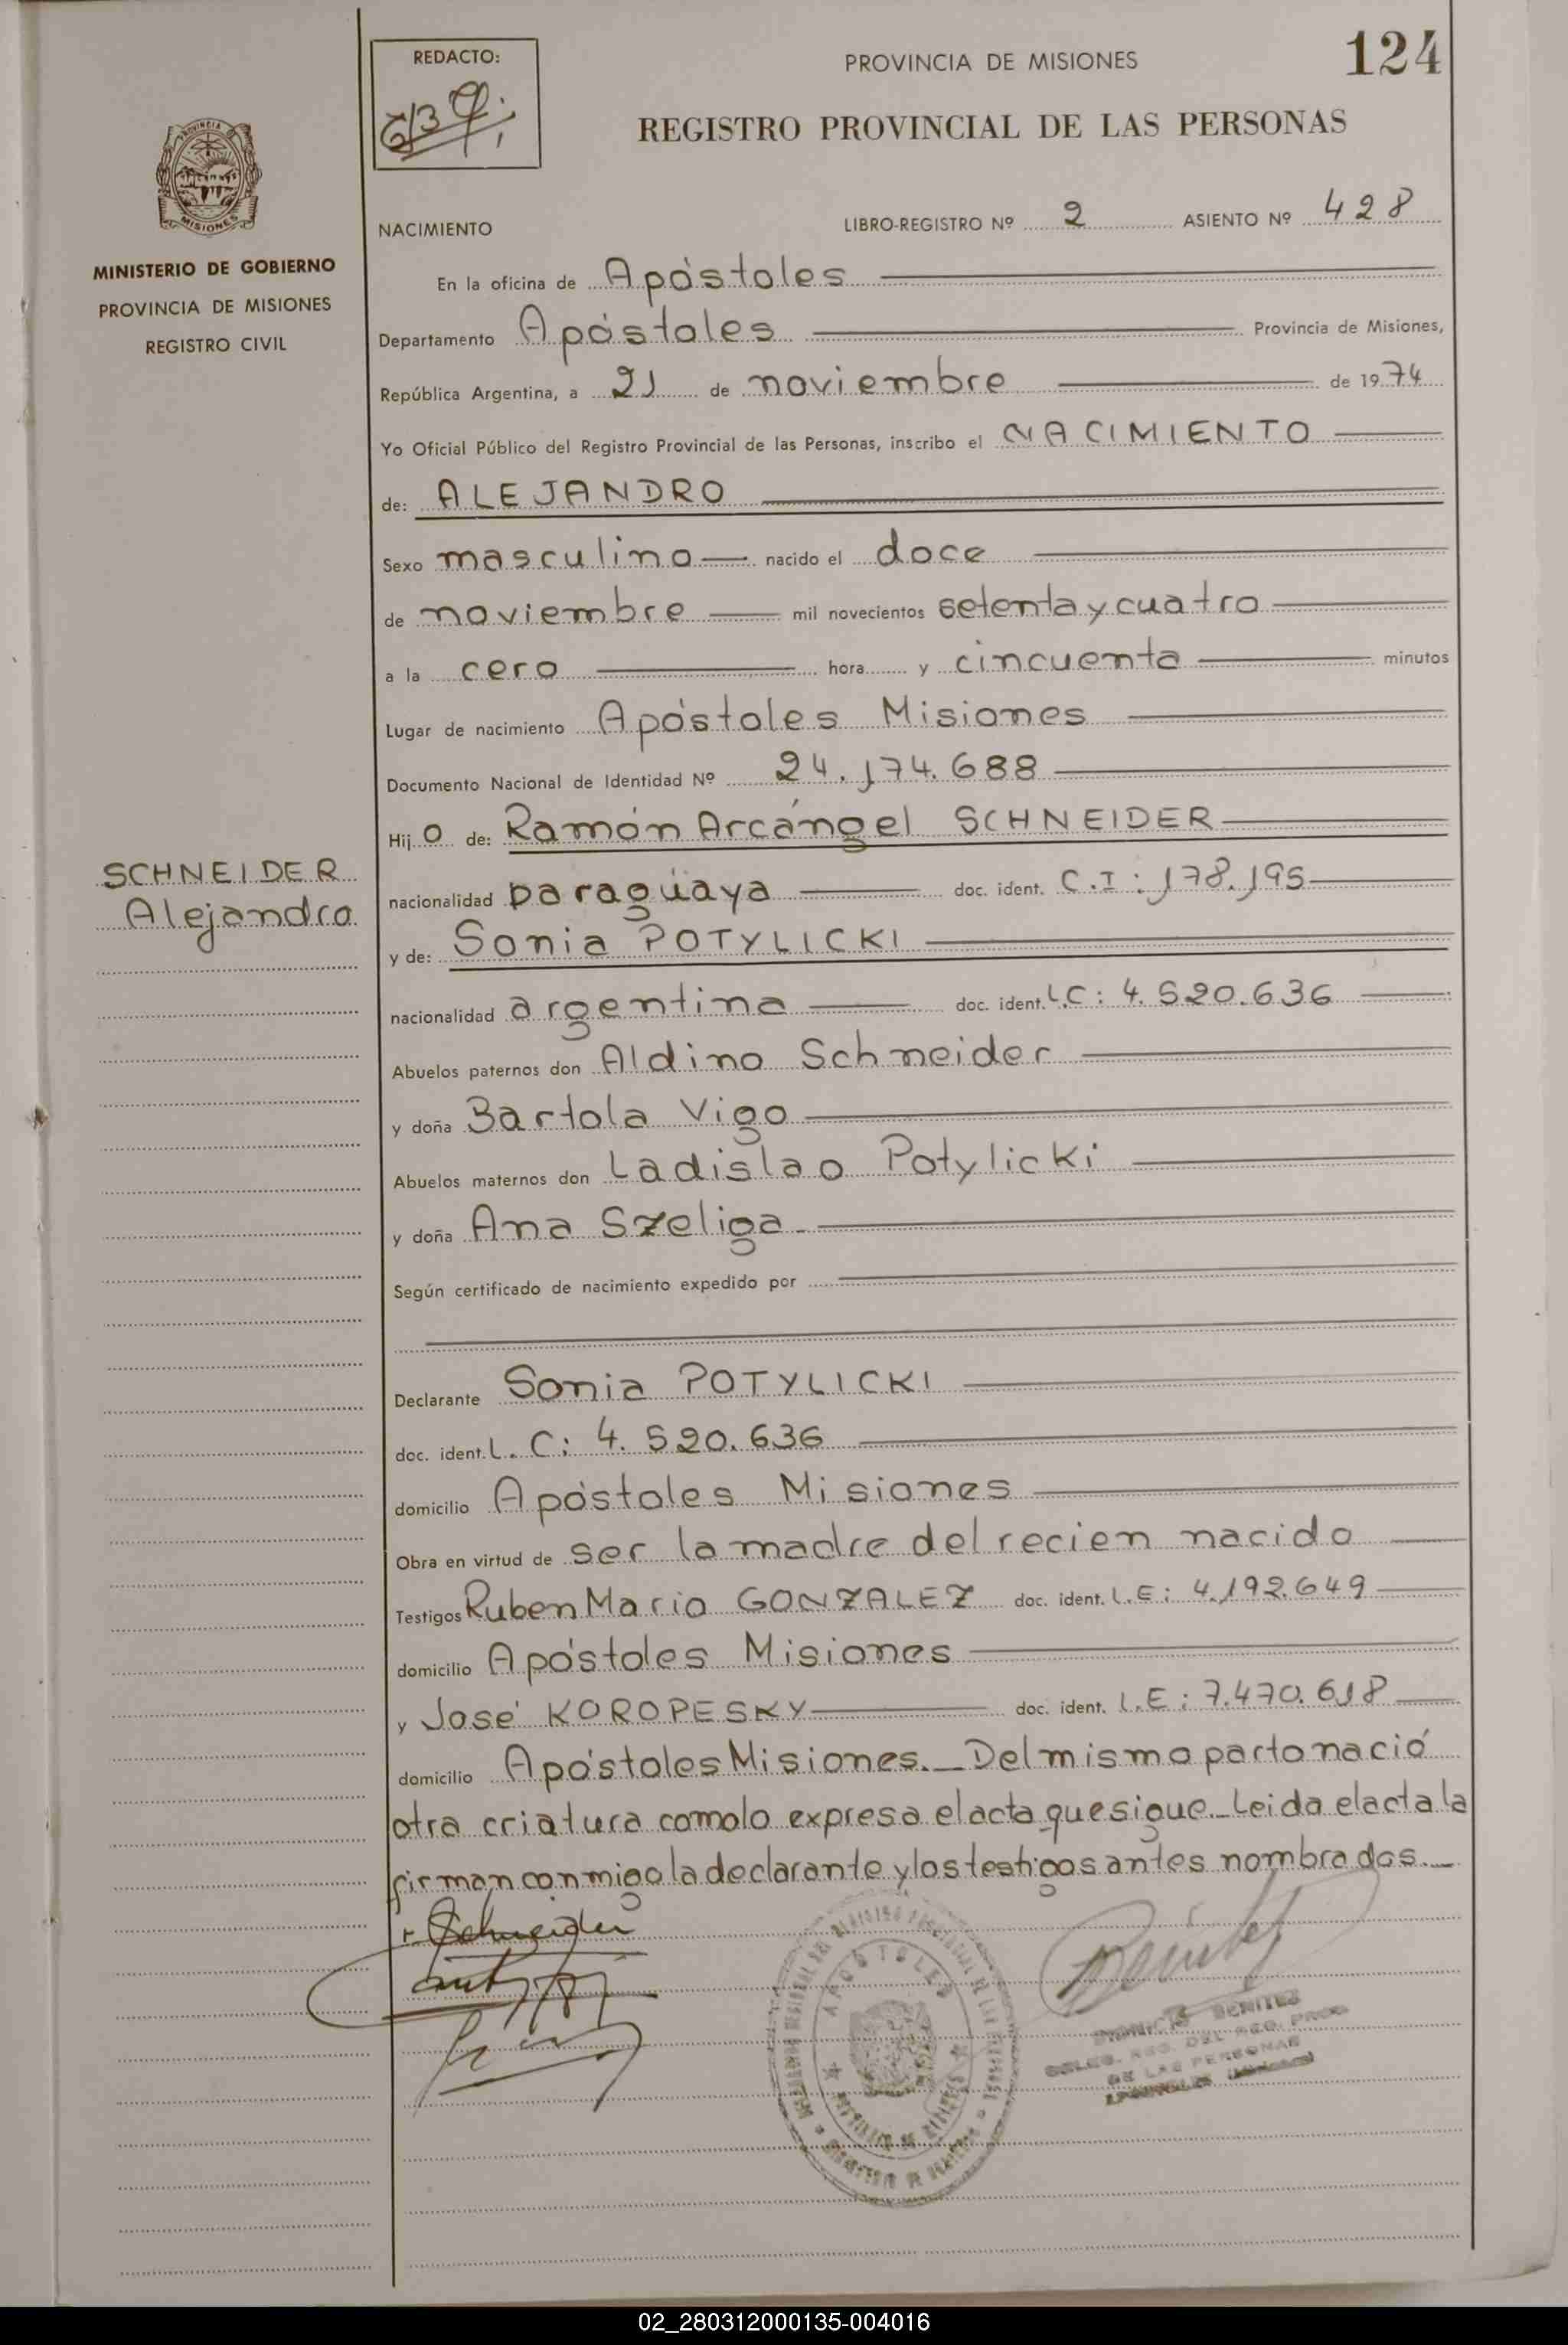 REDACTO:
PROVINCIA DE MISIONES
124
REGISTRO PROVINCIAL DE LAS PERSONAS
PROVINCIA DE
MISIONES
MINISTERIO DE GOBIERNO
PROVINCIA DE MISIONES
REGISTRO CIVIL
NACIMIENTO LIBRO-REGISTRO Nº 2 ASIENTO Nº 428
En la oficina de Apóstoles
Departamento Apóstoles Provincia de Misiones,
República Argentina, a 21 de noviembre de 1974
Yo Oficial Público del Registro Provincial de las Personas, inscribo el NACIMIENTO
de: ALEJANDRO
Sexo masculino nacido el doce
de noviembre mil novecientos setenta y cuatro
a la cero hora y cincuenta minutos
Lugar de nacimiento Apóstoles Misiones
Documento Nacional de Identidad Nº 24.174.688
Hijo de: Ramón Arcángel SCHNEIDER
SCHNEIDER
Alejandro
nacionalidad paragüaya doc. ident. C.I: 178.195
y de: Sonia POTYLICKI
nacionalidad argentina doc. ident. L.C: 4.520.636
Abuelos paternos don Aldino Schneider
y doña Bartola Vigo
Abuelos maternos don Ladislao Potylicki
y doña Ana Szeliga
Según certificado de nacimiento expedido por
Declarante Sonia POTYLICKI
doc. ident. L.C: 4.520.636
domicilio Apóstoles Misiones
Obra en virtud de ser la madre del recien nacido
Testigos Ruben Mario GONZALEZ doc. ident. L.E: 4.192.649
domicilio Apóstoles Misiones
y José KOROPESKY doc. ident. L.E: 7.470.618
domicilio Apóstoles Misiones. Del mismo parto nació
otra criatura como lo expresa el acta que sigue. Leida el acta la
firman conmigo la declarante y los testigos antes nombrados.
Schneider
APOSTOLES
BENITEZ
DELEG. REG. DEL REG. PROV.
DE LAS PERSONAS
02_280312000135-004016